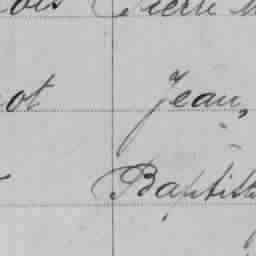 ois Pierre M
ot Jean,
Baptist